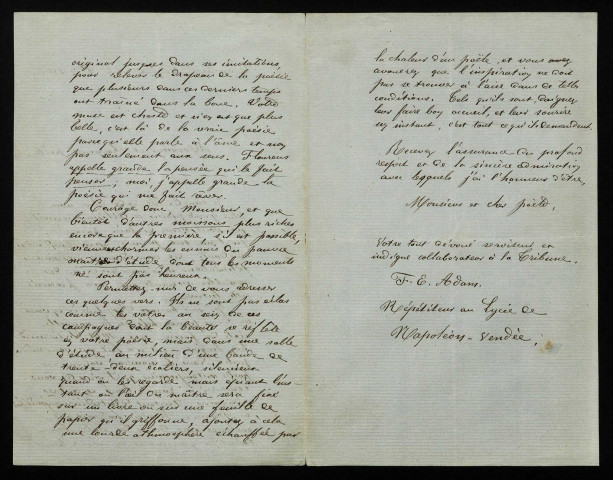 original jusques dans ses imitations,
pour relever le drapeau de la poésie
que plusieurs dans ces derniers temps
ont traîné dans la boue. Votre
muse est chaste et n'en est que plus
belle, c'est là de la vraie poésie
parce qu'elle parle à l'âme et non
pas seulement aux sens. Flourens
appelle grande la pensée qui le fait
penser, moi, j'appelle grande la
poésie qui me fait rêver.
Courage donc, Monsieur, et que
bientôt d'autres moissons plus riches
encore que la première s'il est possible,
viennent charmer les ennuis du pauvre
maître d'étude dont tous les moments
ne sont pas heureux.
Permettez-moi de vous adresser
ces quelques vers. Ils ne sont pas éclos
comme les vôtres au sein de ces
campagnes dont la beauté se reflète
en votre poésie, mais dans une salle
d'étude au milieu d'une bande de
trente-deux écoliers, silencieux
quand on les regarde mais épiant l'ins-
tant où l'œil du maître sera fixé
sur un livre ou sur une feuille de
papier qu'il griffonne, ajoutez à cela
une lourde athmosphère échauffée par
la chaleur d'un poële, et vous
avouerez que l'inspiration ne doit
pas se trouver à l'aise dans de telles
conditions. Tels qu'ils sont daignez
leur faire bon accueil, et leur sourire
un instant, c'est tout ce qu'ils demandent.
Recevez l'assurance du profond
respect et de la sincère admiration
avec lesquels j'ai l'honneur d'être,
Monsieur et cher poëte,
Votre tout dévoué serviteur et
indigne collaborateur à la Tribune.
F. E. Adam
Répétiteur au Lycée de
Napoléon-Vendée.